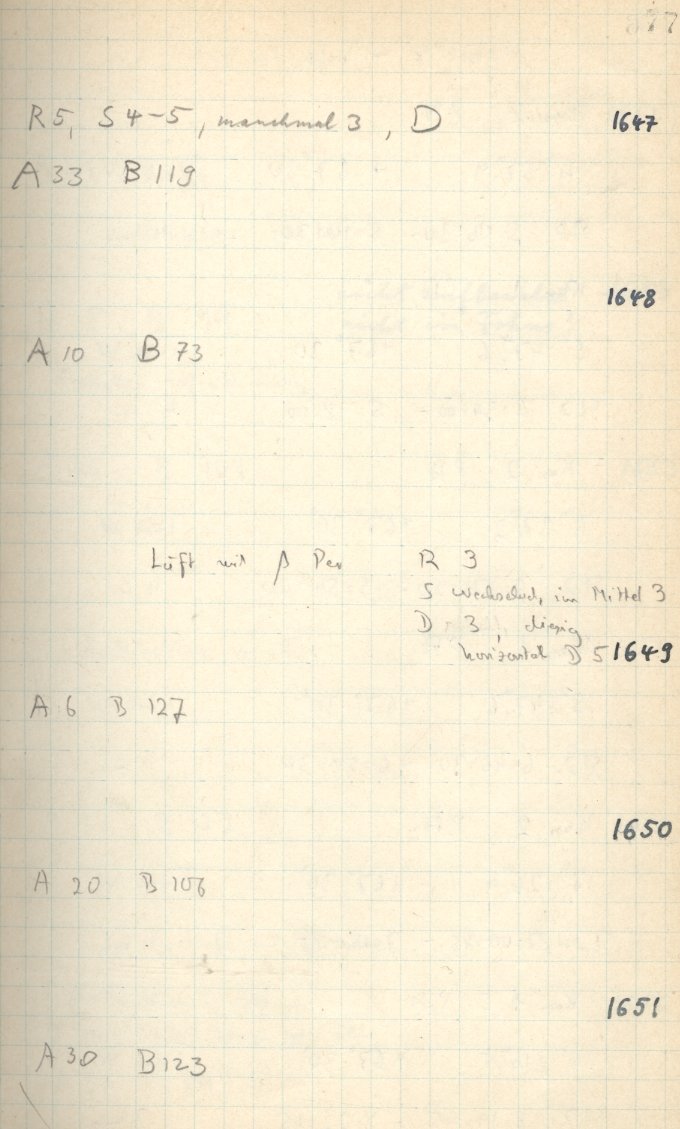 77
R 5, S 4-5, manchmal 3, D 1647
A 33 B 119
1648
A 10 B 73
Luft mit β Per R 3
S wechselnd, im Mittel 3
D 3, diesig
horizontal D 5 1649
A 6 B 127
1650
A 20 B 106
1651
A 30 B 123